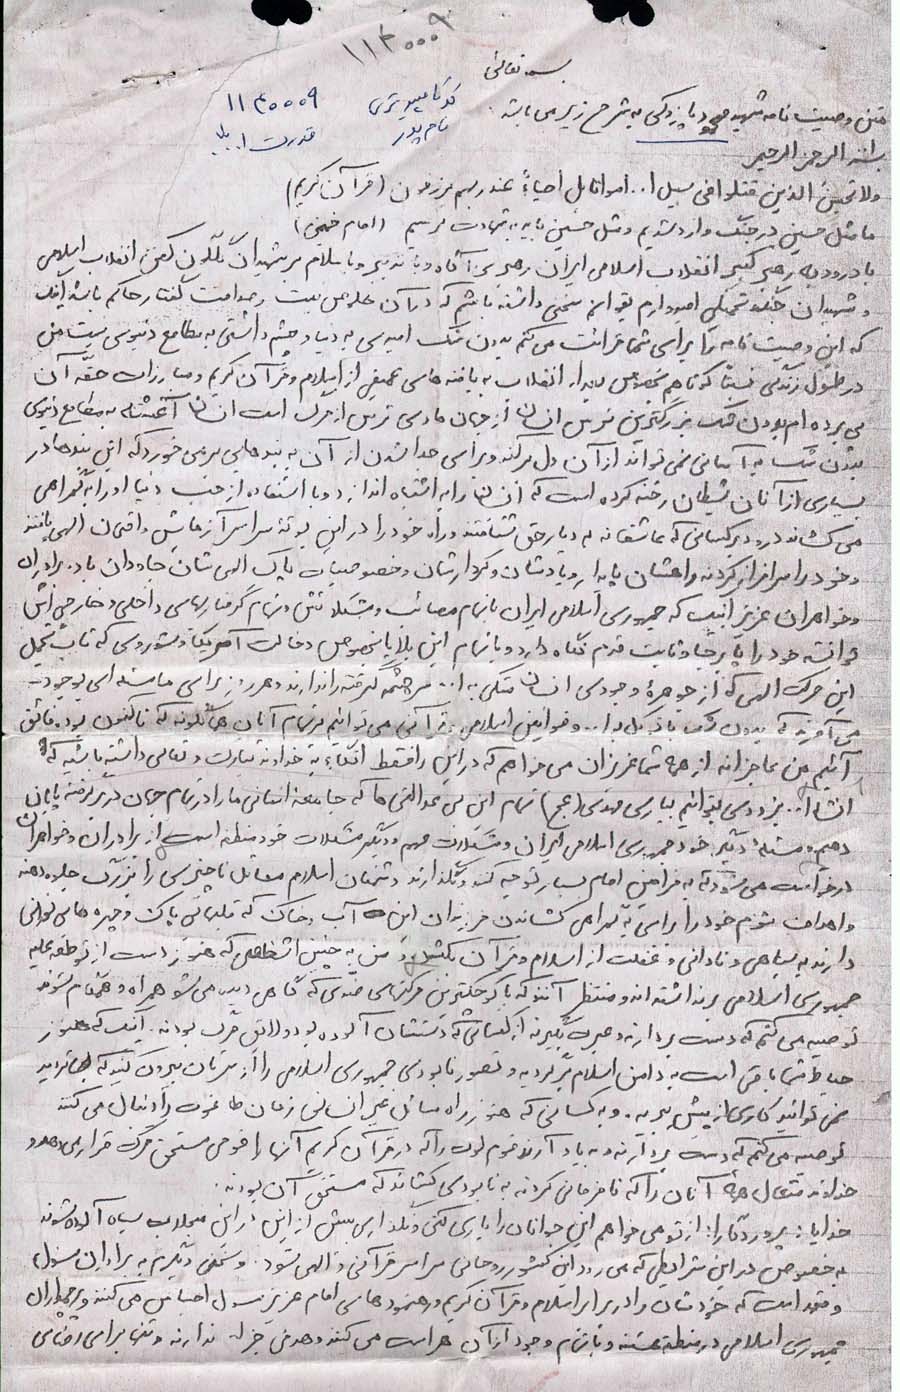 ۱۱۴۰۰۰۹
بسمه تعالی
کد کامپیوتری ۱۱۴۰۰۰۹
نام پدر قدرت ا...
متن وصیت نامه شهید محمود پازوکی به شرح زیر می باشد.
بسم الله الرحمن الرحیم
ولا تحسبن الذین قتلوا فی سبیل ا... امواتا بل احیاءٌ عند ربهم یرزقون (قرآن کریم)
ما مثل حسین در جنگ وارد شدیم و مثل حسین باید به شهادت برسیم (امام خمینی)
با درود به رهبر کبیر انقلاب اسلامی ایران رهبری آگاه و با تدبیر و با سلام بر شهیدان گلگون کفن انقلاب اسلامی
و شهیدان جنگ تحمیلی امیدوارم بتوانم سخنی داشته باشم که در آن خلوص نیت و صداقت گفتار حاکم باشد آنگ
که این وصیت نامه را برای شما قرائت می کنم بدون شک امیدی به دنیا و چشم داشتی به مطامع دنیوی نیست من
در طول زندگی نسبتاً کوتاهم بخصوص بعد از انقلاب به یافته های عمیقی از اسلام و قرآن کریم و مبارزات حقه آن
پی برده ام بدون شک بزرگترین ترس انسان از جهان مادی ترس از مرگ است انسان آغشته به مطامع دنیوی
بدون شک به آسانی نمی تواند از آن دل برکند و برای جدا شدن از آن به بندهایی برمی خورد که این بندها در
بسیاری از آنان شیطان رخنه کرده است که انسان را به اشتباه اندازد و با استفاده از حب دنیا او را به گمراهی
می کشاند درود بر کسانی که عاشقانه به دیار حق شتافتند و راه خود را در این بوته سراسر آزمایش و امتحان الهی یافتند
و خود را سرافراز کردند راهشان پایدار و یادشان و کردارشان و خصوصیات پاک الهی شان جاودان باد. برادران
و خواهران عزیز اینک که جمهوری اسلامی ایران با تمام مصائب و مشکلاتش و تمام گرفتاریهای داخلی و خارجی اش
توانسته خود را پابرجا و ثابت قدم نگاه دارد و با تمام این بلایا بخصوص دخالت آمریکا و شوروی که تاب تحمل
این حرکت الهی که از جوهره وجودی انسان متکی به ا... سرچشمه گرفته را ندارند و هر روز برای ما مسئله ای بوجود
می آورند که بدون شک با توکل به ا... و قوانین اسلامی و قرآنی می توانیم بر تمام آنان همانگونه که تاکنون بوده فائق
آئیم من عاجزانه از همه شما عزیزان می خواهم که در این راه فقط اتکاء به خداوند تبارک و تعالی داشته باشید که
انشاا... بزودی بتوانیم بیاری مهدی (عج) تمام این بی عدالتی ها که جامعه انسانی ما را در تمام جهان در بر گرفته پایان
دهیم و مسئله دیگر خود جمهوری اسلامی ایران و مشکلات مهم و دیگر مشکلات خود منطقه است از برادران و خواهران
درخواست می شود که به فرامین امام بسیار توجه کنند و نگذارند دشمنان اسلام مسائل ناچیزی را بزرگ جلوه دهند
و اهداف شوم خود را برای به گمراهی کشاندن فرزندان این آب و خاک که قلبهائی پاک و چهره های نورانی
دارند به سیاهی و نادانی و غفلت از اسلام و قرآن بکشند و من به چنین اشخاصی که هنوز دست از توطئه علیه
جمهوری اسلامی برنداشته اند و منتظر آنند که با کوچکترین حرکتهای ضدی که گاهی دیده می شود همراه و همگام شوند
توصیه می کنم که دست بردارند و عبرت بگیرند از کسانی که دستشان آلوده بود و لایق مرگ بودند. اینک که هنوز
حیات شما باقی است به دامن اسلام برگردید و تصور نابودی جمهوری اسلامی را از سرتان بیرون کنید که
نمی توانند کاری از پیش ببرند. و به کسانی که هنوز راه مسائل غیر انسانی زمان طاغوت را دنبال می کنند
توصیه می کنم که دست بردارند و به یاد آرند قوم لوط را که در قرآن کریم آنها را قومی مستحق مرگ قرار می دهد و
خداوند متعال همه آنان را که نافرمانی کردند به نابودی کشاند که مستحق آن بودند.
خدایا: پروردگارا: از تو می خواهم این جوانان را یاری کنی و نگذاری بیش از این در این منجلاب سیاه آلوده شوند
به خصوص در این شرایطی که می رود این کشور روحانی سراسر قرآنی و الهی شود. و سخنی دیگرم به برادران مسئول
و متعهد است که خودشان را در برابر اسلام و قرآن کریم و رهنمودهای امام عزیز مسئول احساس می کنند و پرچمداران
جمهوری اسلامی در منطقه هستند و با تمام وجود از آن حراست می کنند و هدفی جز ندارند و تنها برای رضای